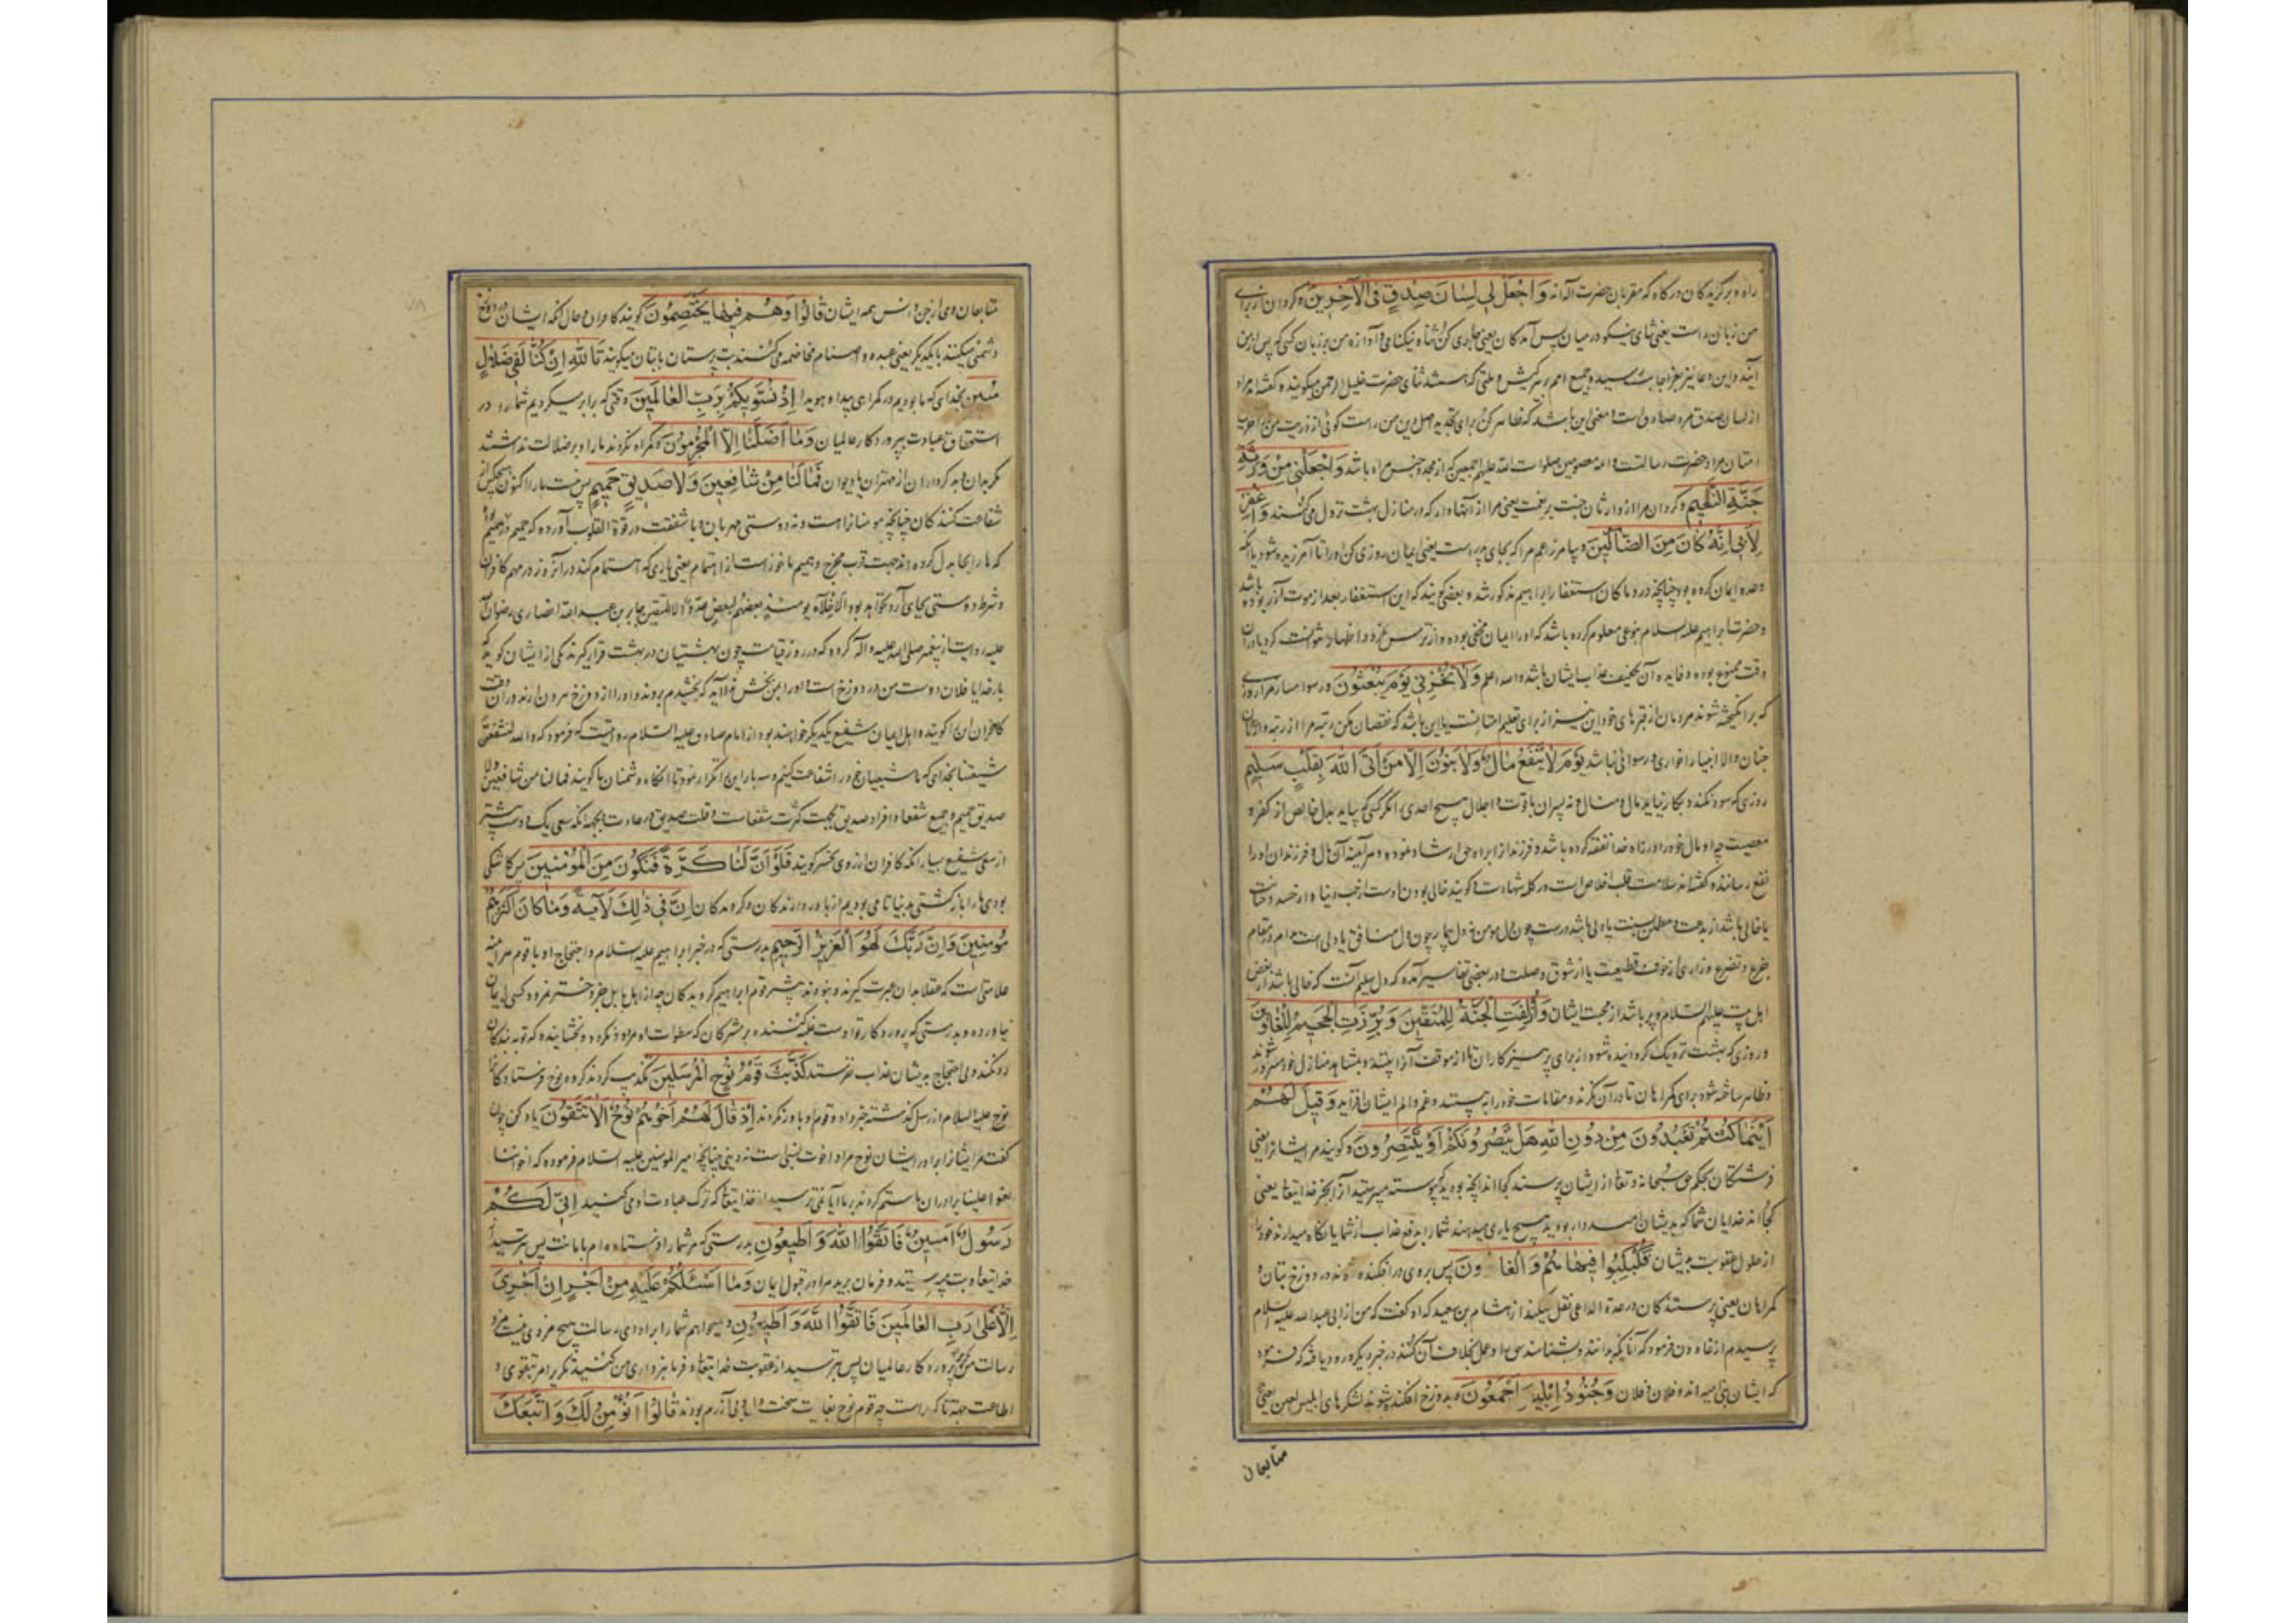 راه و برگزیدگان درگاه که مقربان حضرت اله اند وَاجْعَلْ لِی لِسَانَ صِدْقٍ فِی الْآخِرِینَ و گردان از برای
من زبان راست یعنی ثنای نیکو در میان پس آمدگان یعنی جاری کن ثناء نیکنامی و آوازه من بر زبان کسی که پس از من
آیند و این دعا نیز بعز اجابت رسیده و جمیع امم بر هر کیش و ملتی که هستند ثنای حضرت خلیل الرحمن میگویند و گفته اند مراد
از لسان صدق مرد صادق است و معنی این باشد که ظاهر کن برای تجدید اصل دین من راست گوئی از ذریت من در آخر
امتان مراد حضرت رسالت و ائمه معصومین صلوات الله علیهم اجمعین که از مجد و جنس من اند باشد وَاجْعَلْنِی مِنْ وَرَثَةِ
جَنَّةِ النَّعِیمِ و گردان مرا از وارثان جنت پر نعمت یعنی مرا از آنها دار که در منازل بهشت نزول می کنند وَاغْفِرْ
لِأَبِی إِنَّهُ كَانَ مِنَ الضَّالِّینَ و بیامرز عم مرا که بجای پدر است یعنی ایمان روزی کن او را تا آمرزیده شود یا آنکه
وعده ایمان کرده بود چنانچه در و ما کان استغفار ابراهیم مذکور شد و بعضی گویند که این استغفار بعد از موت آزر بوده باشد
و حضرت ابراهیم علیه السلام بنوعی معلوم کرده باشد که او را ایمان مخفی بوده و از ترس نمرود اظهار نتوانست کرد یا در آن
وقت ممنوع نبوده و فایده آن تخفیف عذاب ایشان باشد و الله اعلم وَلَا تُخْزِنِی یَوْمَ یُبْعَثُونَ و رسوا مساز مرا روزی
که برانگیخته شوند مردمان از قبرهای خود این نیز از برای تعلیم امتانست یا این باشد که نقصان مکن رتبه مرا از رتبه وارثان
جنان والا انبیا را خواری و رسوائی نباشد یَوْمَ لَا یَنْفَعُ مَالٌ وَلَا بَنُونَ إِلَّا مَنْ أَتَى اللَّهَ بِقَلْبٍ سَلِیمٍ
روزی که سود نکند و بکار نیاید مال و منال و نه پسران با قوت و اجلال هیچ احدی را مگر کسی که بیاید بدل خالص از کفر و
معصیت چه او مال خود را در راه خدا نفقه کرده باشد و فرزند را براه حق ارشاد نموده و هر آینه آن مال و فرزندان او را
نفع رسانند و گفته اند سلامت قلب اخلاص است در کلمه شهادت و گویند خالی بودن اوست از حب دنیا و از حسد و خیانت
یا خالی باشد از بدعت و مطمئن بسنت یا دلی باشد درست چون دل مومن نه دل بیمار چون دل منافق یا دلی است مدام در مقام
جزع و تضرع و زاری از خوف قطیعت یا از شوق وصلت و در بعضی تفاسیر آمده که دل سلیم آنست که خالی باشد از بغض
اهل بیت علیهم السلام و پر باشد از محبت ایشان وَأُزْلِفَتِ الْجَنَّةُ لِلْمُتَّقِینَ وَبُرِّزَتِ الْجَحِیمُ لِلْغَاوِینَ
و روزی که بهشت نزدیک گردانیده شود از برای پرهیزکاران تا از موقف آنرا بینند و بمشاهده منازل خود مسرور شوند
و ظاهر ساخته شود برای گمراهان تا در آن نگرند و مقامات خود را به بینند و غم و الم ایشان افزاید وَقِیلَ لَهُمْ
أَیْنَمَا كُنْتُمْ تَعْبُدُونَ مِنْ دُونِ اللَّهِ هَلْ یَنْصُرُونَكُمْ أَوْ یَنْتَصِرُونَ و گویند مر ایشانرا یعنی
فرشتگان بحکم حق سبحانه و تعالی از ایشان پرسند کجا اند آنچه بودید که پیوسته میپرستیدید آنرا بجز خدایتعالی یعنی
کجا اند خدایان شما که بدیشان امیدوار بودید هیچ یاری میدهند شما را بدفع عذاب از شما یا نگاه میدارند خود را
از حلول عقوبت بدیشان فَكُبْكِبُوا فِیهَا هُمْ وَالْغَاوُونَ پس بروی درافکنده شوند در دوزخ بتان و
گمراهان یعنی پرستندگان در عدة الداعی نقل میکند از هشام بن سعید که او گفت که من از ابی عبدالله علیه السلام
پرسیدم از غاوون فرمود که آنانکه بدانند و بشناسند حق را و عمل بخلاف آن کنند و در خبر دیگر ورود یافته که فرمود
که ایشان بنی امیه اند و فلان و فلان وَجُنُودُ إِبْلِیسَ أَجْمَعُونَ و بدوزخ افکنده شوند لشکرهای ابلیس لعین یعنی
متابعان
متابعان وی از جن و انس همه ایشان قَالُوا وَهُمْ فِیهَا یَخْتَصِمُونَ گویند کافران و حال آنکه ایشان در دوزخ
دشمنی میکنند با یکدیگر یعنی عبده و اصنام مخاصمه می کنند بت پرستان با بتان میگویند تَاللَّهِ إِنْ كُنَّا لَفِی ضَلَالٍ
مُبِینٍ بخدای که ما بودیم در گمراهی پیدا و هویدا إِذْ نُسَوِّیكُمْ بِرَبِّ الْعَالَمِینَ وقتی که برابر میکردیم شما را در
استحقاق عبادت بپروردگار عالمیان وَمَا أَضَلَّنَا إِلَّا الْمُجْرِمُونَ و گمراه نکردند ما را و بر ضلالت نداشتند
مگر بدان و بد کرداران از مهتران یا دیوان فَمَا لَنَا مِنْ شَافِعِینَ وَلَا صَدِیقٍ حَمِیمٍ پس نیست ما را اکنون هیچکس از
شفاعت کنندگان چنانچه مومنانرا هست و نه دوستی مهربان و با شفقت در قوة القلوب آورده که حمیم در اصل همیم بود
که ها را بحا بدل کرده اند جهت قرب مخرج و همیم ماخوذ است از اهتمام یعنی یاری که اهتمام کند در آنروز در مهم کافران
و شرط دوستی بجای آرد نخواهد بود الاخلاء یومئذ بعضهم لبعض عدو الا المتقین جابر بن عبدالله انصاری رضوان الله
علیه روایت از پیغمبر صلی الله علیه و آله کرده که در روز قیامت چون بهشتیان در بهشت قرار گیرند یکی از ایشان گوید که
بار خدایا فلان دوست من در دوزخ است او را بمن بخش ندا آید که بخشیدم بروند و او را از دوزخ بیرون آرند در آن وقت
کافران این گویند و اهل ایمان شفیع یکدیگر خواهند بود از امام صادق علیه السلام روایتست که فرمود که و الله لنشفعن
شیعتنا بخدای که ما شیعیان خود را شفاعت کنیم و سه بار این را تکرار نمود تا آنگاه دشمنان ما گویند فما لنا من شافعین ولا
صدیق حمیم و جمیع شفعا و افراد صدیق بجهت کثرت شفعاست و قلت صدیق در عادت یا بجهة آنکه سعی یک دوست بیشتر
از سعی شفیع بسیار آنکه کافران از روی تحسر گویند فَلَوْ أَنَّ لَنَا كَرَّةً فَنَكُونَ مِنَ الْمُؤْمِنِینَ پس کاشکی
بودی ما را بازگشتی بدنیا تا می بودیم از باور دارندگان و گروندگان إِنَّ فِی ذَلِكَ لَآیَةً وَمَا كَانَ أَكْثَرُهُمْ
مُؤْمِنِینَ وَإِنَّ رَبَّكَ لَهُوَ الْعَزِیزُ الرَّحِیمُ بدرستی که در خبر ابراهیم علیه السلام و احتجاج او با قوم هر آینه
علامتی است که عقلا بدان عبرت گیرند و نبودند بیشتر قوم ابراهیم گرویدگان چه از اهل بابل جز دختر نمرود کسی ایمان
نیاورده و بدرستی که پروردگار تو اوست غلبه کننده بر مشرکان که سطوات او مردود نگردد و بخشاینده که توبه بندگان
رد نکند و بی احتجاج بدیشان عذاب نفرستد كَذَّبَتْ قَوْمُ نُوحٍ الْمُرْسَلِینَ تکذیب کردند گروه نوح فرستادگان را
نوح علیه السلام از رسل گذشته خبر داد و قوم او باور نکردند إِذْ قَالَ لَهُمْ أَخُوهُمْ نُوحٌ أَلَا تَتَّقُونَ یاد کن چون
گفت مر ایشانرا برادر ایشان نوح مراد اخوت نسبی است نه دینی چنانچه امیر المومنین علیه السلام فرموده که اخواننا
بغوا علینا برادران ما ستم کردند بر ما آیا نمی ترسید از خدایتعالی که ترک عبادت او می کنید إِنِّی لَكُمْ
رَسُولٌ أَمِینٌ فَاتَّقُوا اللَّهَ وَأَطِیعُونِ بدرستی که من شما را فرستاده ام با امانت پس بترسید از
خدایتعالی و بت مپرستید و فرمان برید مرا در قبول ایمان وَمَا أَسْئَلُكُمْ عَلَیْهِ مِنْ أَجْرٍ إِنْ أَجْرِیَ
إِلَّا عَلَى رَبِّ الْعَالَمِینَ فَاتَّقُوا اللَّهَ وَأَطِیعُونِ و نمیخواهم شما را بر ادای رسالت هیچ مزدی نیست مزد
رسالت من مگر بر پروردگار عالمیان پس بترسید از عقوبت خدایتعالی و فرمانبرداری من کنید تکریر امر بتقوی و
اطاعت جهة تاکید است چه قوم نوح بغایت سخت دل و بی آزرم بودند قَالُوا أَنُؤْمِنُ لَكَ وَاتَّبَعَكَ